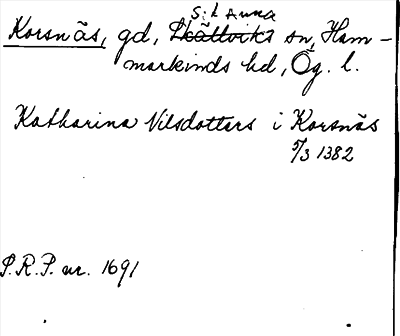 S:t Anna
Korsnäs, gd, Skällviks sn, Ham-
markinds hd, Ög. l.
Katharina Nilsdotters i Korsnäs
5/3 1382
S.R.P. nr. 1691